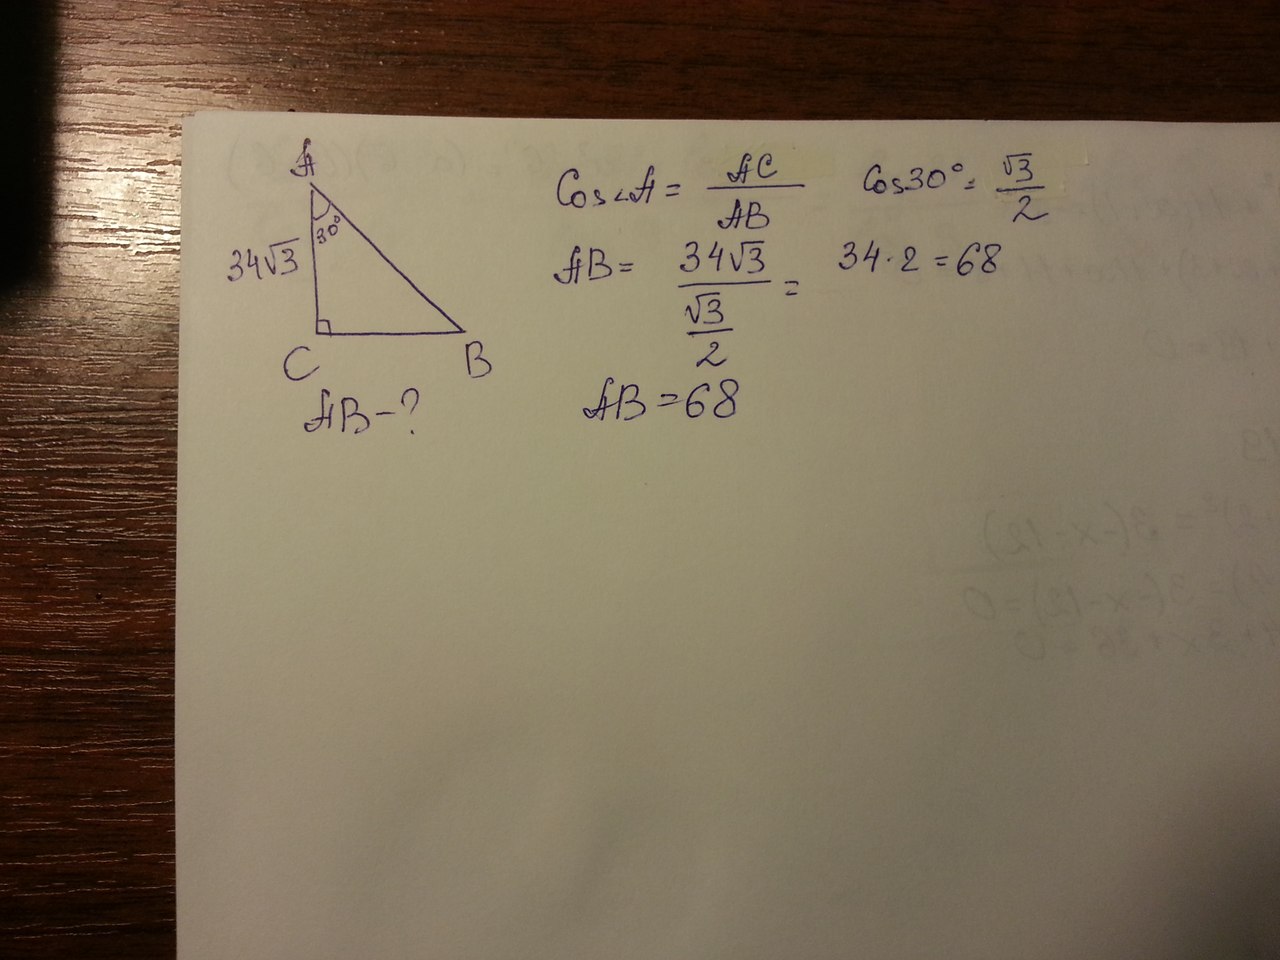 A
30°
34√3
C
B
AB-?
Cos∠A = AC/AB
Cos30° = √3/2
AB = 34√3/(√3/2) = 34·2=68
AB=68